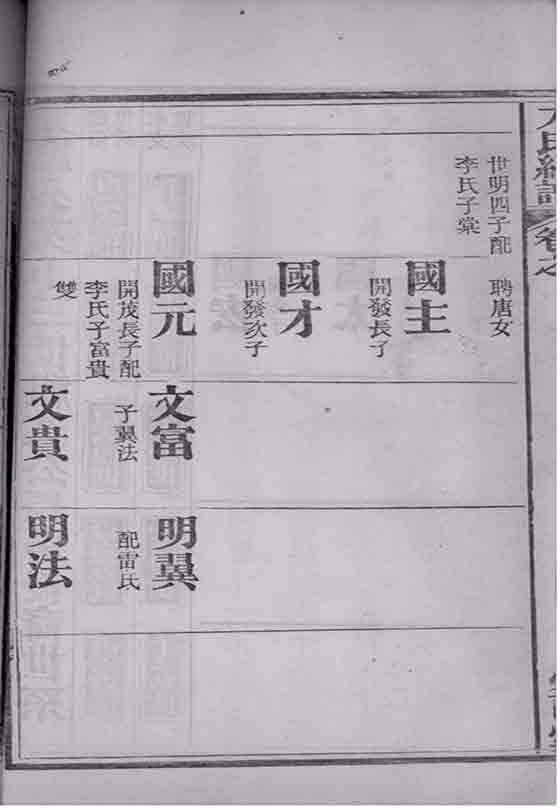 氏續譜
卷之
世明四子配
李氏子棠
聘唐女
國主
開發長子
國才
開發次子
國元
開茂長子配
李氏子富貴
雙
文富
子翼法
文貴
明翼
配雷氏
明法